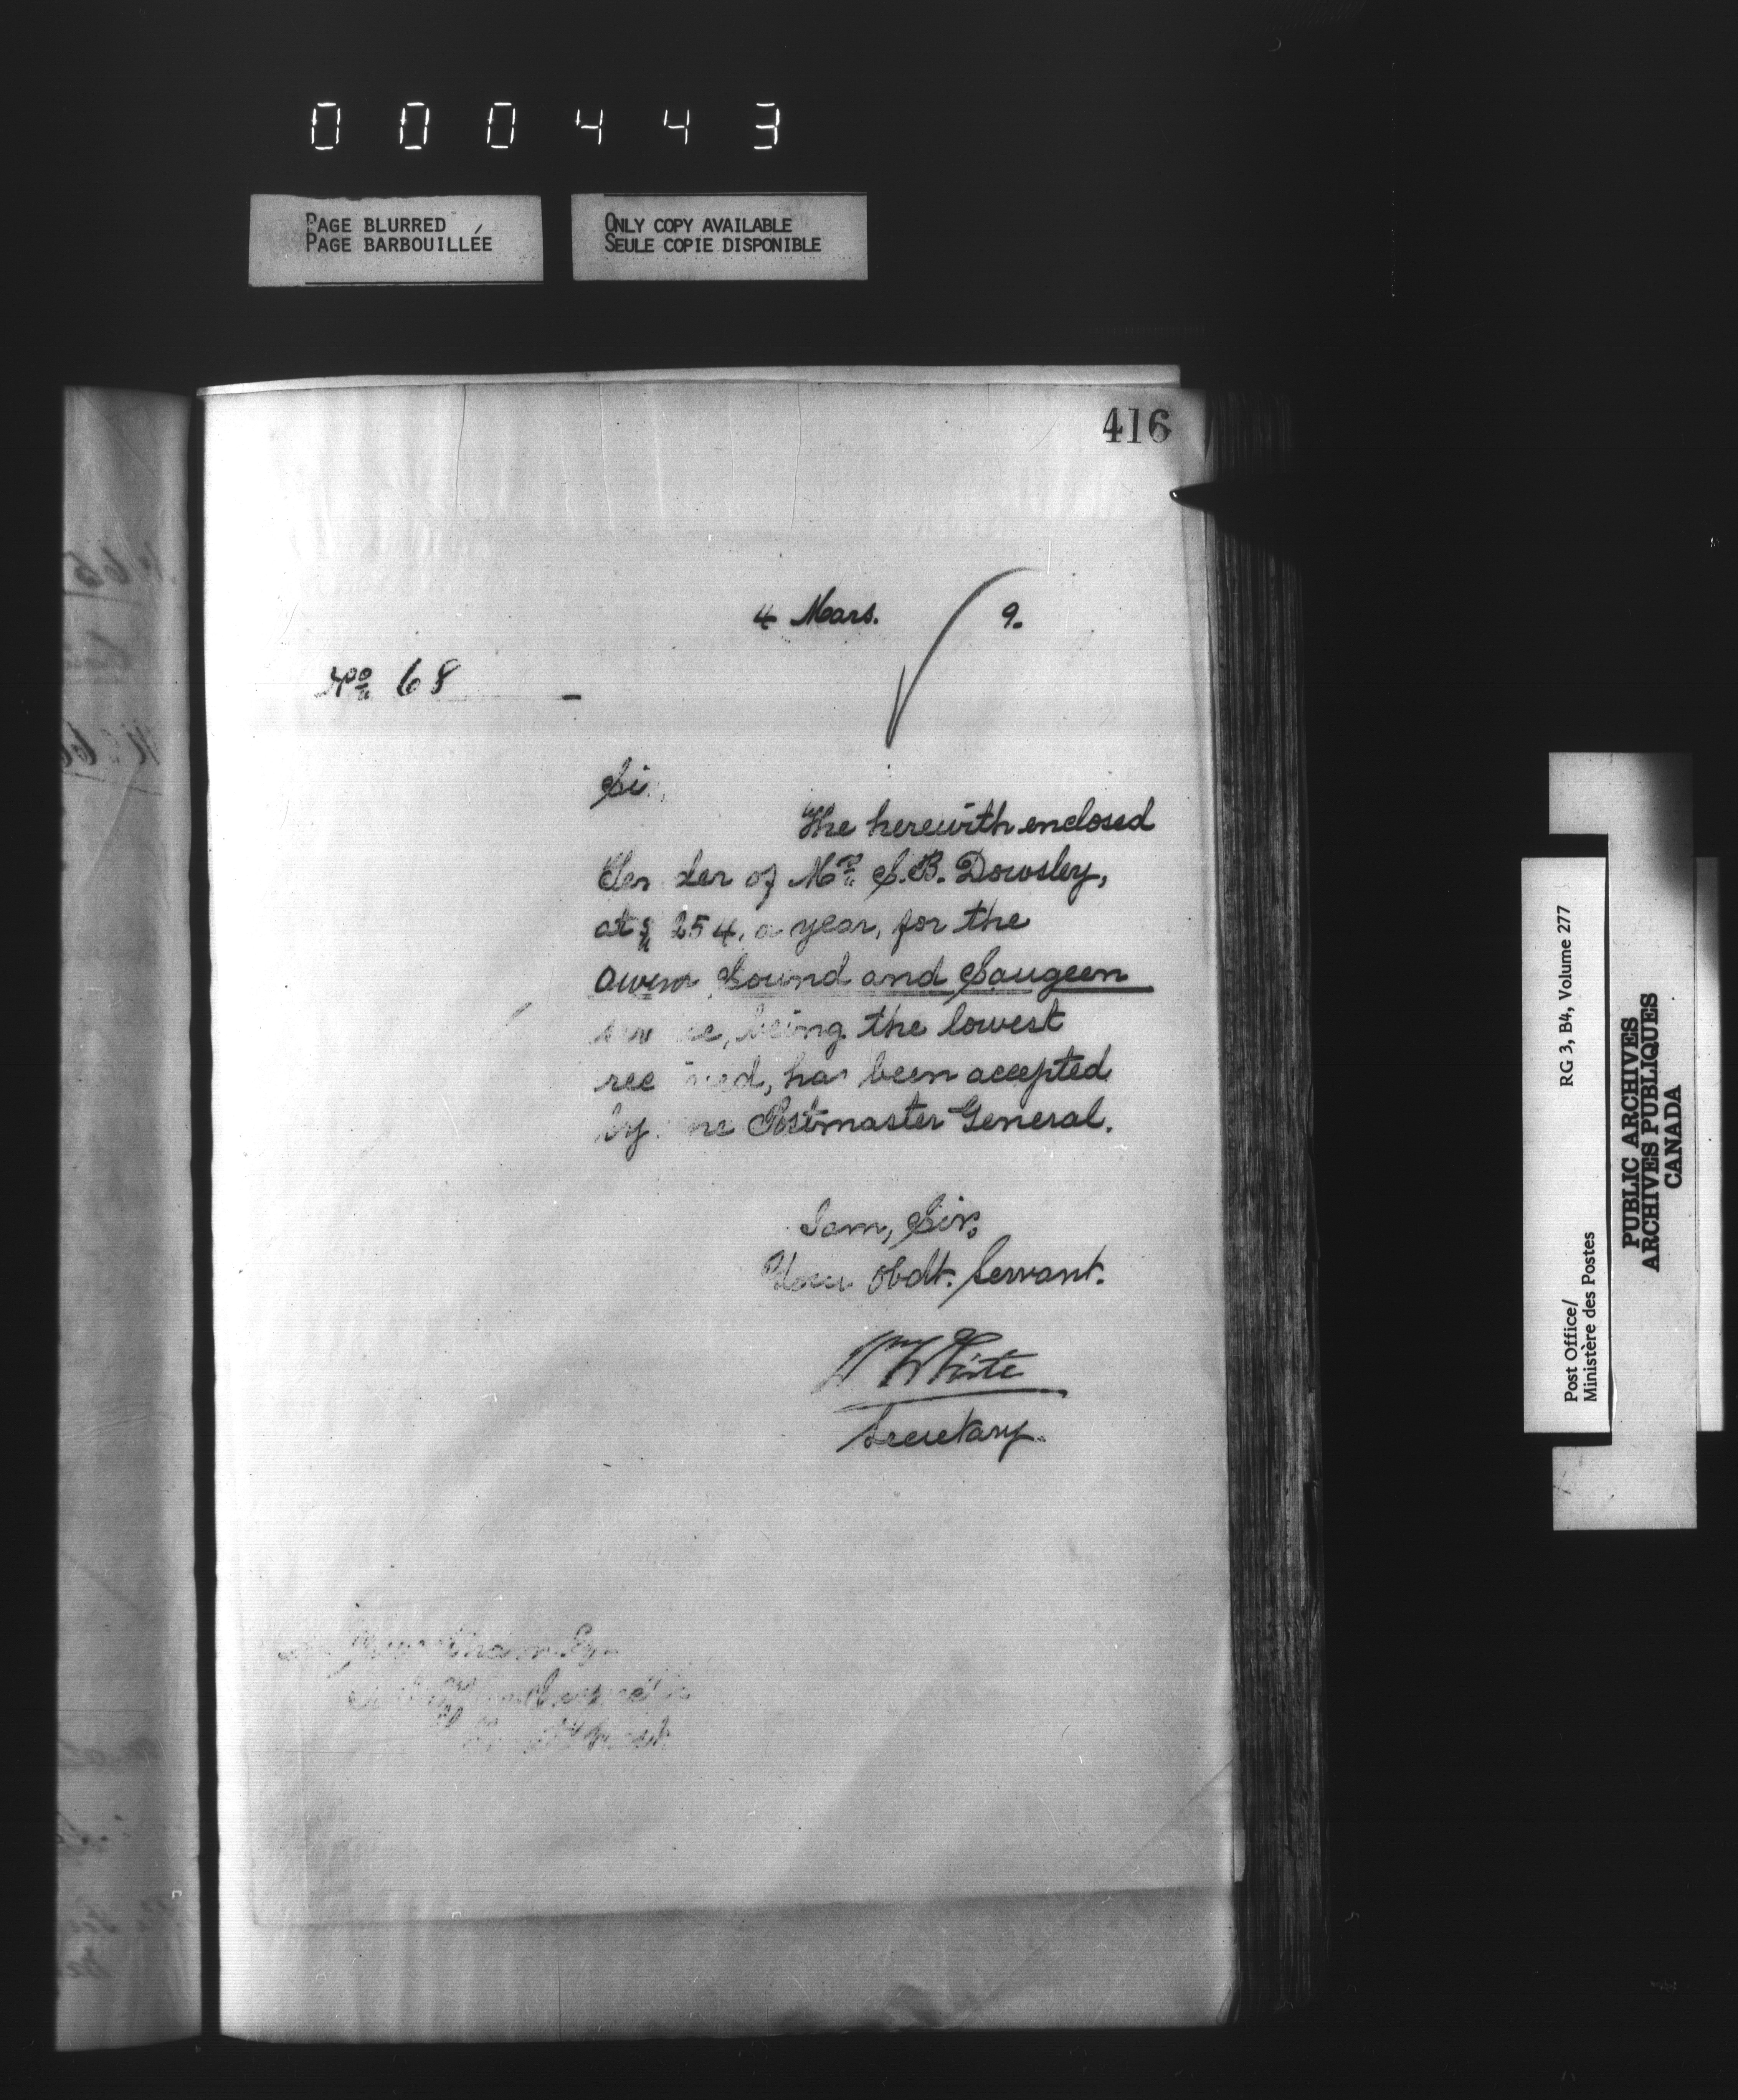 000443
PAGE BLURRED
PAGE BARBOUILLÉE
ONLY COPY AVAILABLE
SEULE COPIE DISPONIBLE
416
4 Mars. 9.
No 68
Si
The herewith enclosed
Ten der of Mr. S.B. Dowsley,
at $254, a year, for the
Owen Sound and Saugeen
being the lowest
rec ived, has been accepted
by he Postmaster General.
I am, Sir,
Your Obdt. Servant.
Wm White
Secretary.
Post Office/
Ministère des Postes
RG 3, B4, Volume 277
PUBLIC ARCHIVES
ARCHIVES PUBLIQUES
CANADA